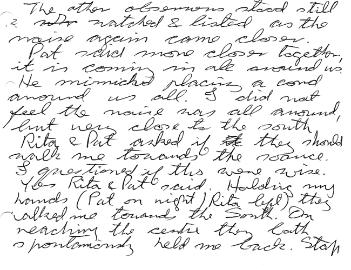 The other observers stood still
& watched & listed as the
noise again came closer.
Pat said move closer together,
it is coming in all around us.
He mimicked placing a cord
around us all. I did not
feel the noise was all around,
but very close to the south
Rita & Pat asked if they should
walk me towards the source.
I questioned if this were wise.
Yes Rita & Pat said. Holding my
hands (Pat on right) Rita left) they
walked me toward the South. On
reaching the centre they both
spontaneously held me back. Stop